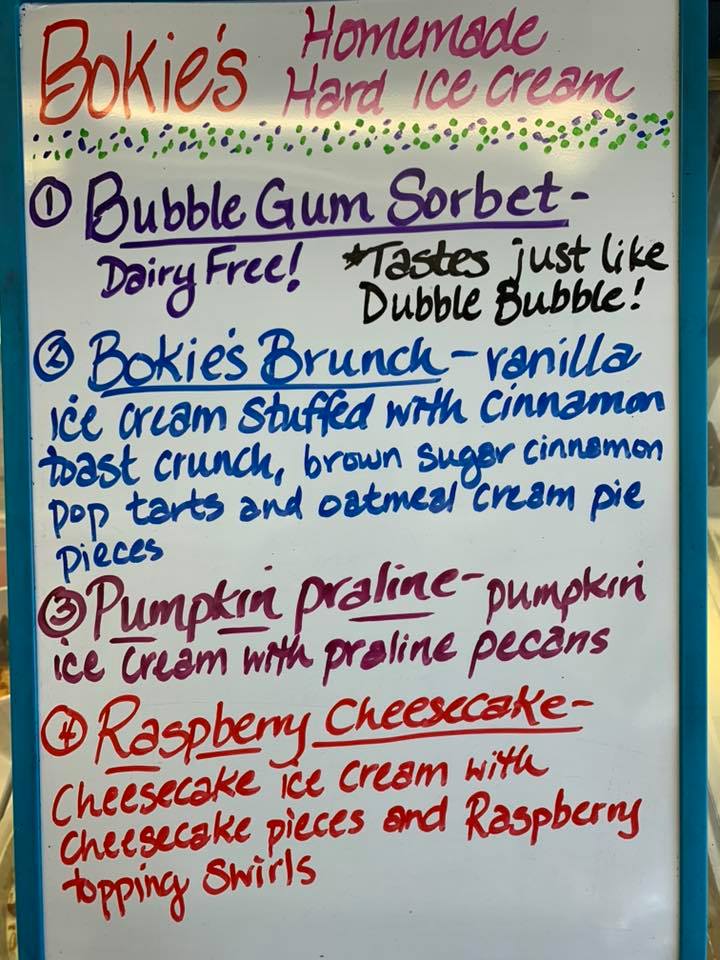 Bokie's Homemade
Hard Ice Cream
① Bubble Gum Sorbet-
Dairy Free! *Tastes just like
Dubble Bubble!
② Bokie's Brunch - vanilla
ice cream stuffed with cinnamon
toast crunch, brown sugar cinnamon
pop tarts and oatmeal cream pie
pieces
③ Pumpkin praline- pumpkin
ice cream with praline pecans
④ Raspberry Cheesecake-
Cheesecake ice cream with
Cheesecake pieces and Raspberry
topping swirls